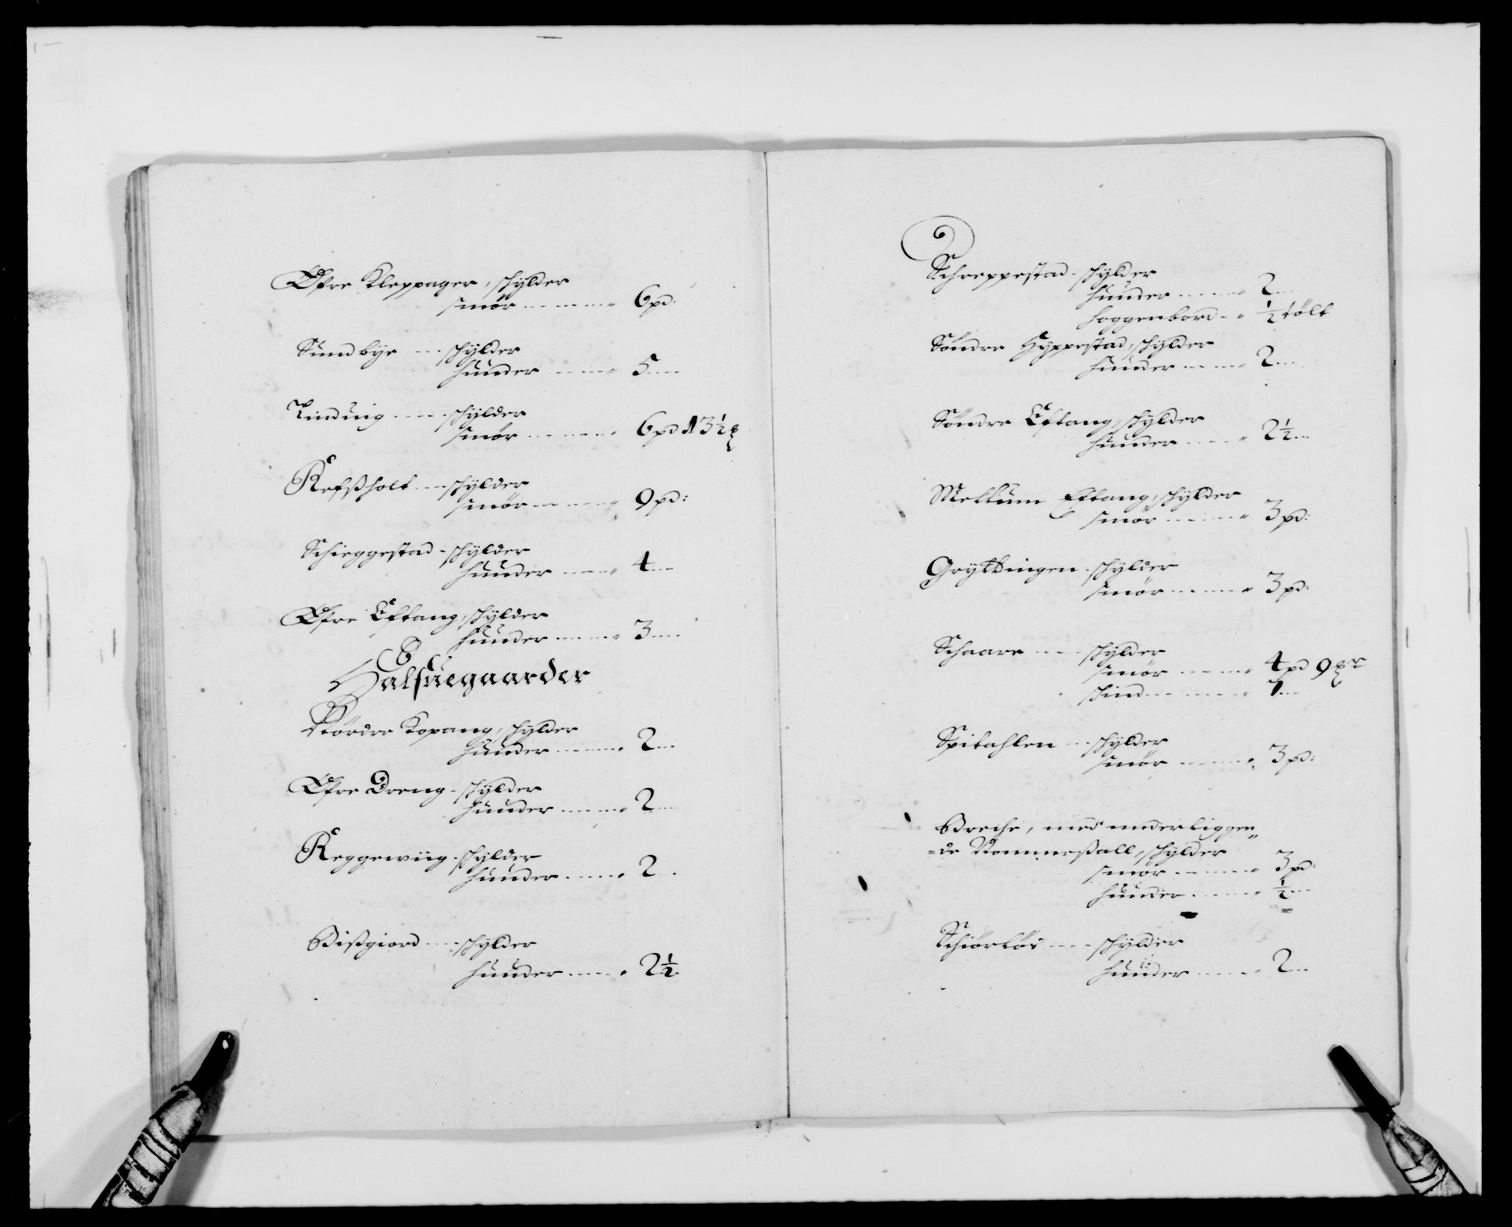 Øfre Kleppager, schylder
smör ‒‒‒‒ 6 pd:
Sundbye ‒‒ schylder
huuder ‒‒‒ 5 ‒
Tinduig ‒‒ schylder
smör ‒‒‒‒ 6 pd 13½
Refßholt ‒‒ schylder
smör ‒‒‒‒ 9 pd:
Schieggestad ‒ schylder
huuder ‒‒‒ 4 ‒
Øfre Eftang, schylder
huuder ‒‒‒ 3 ‒
Halfuegaarder
Nördre Kopang, schylder
huuder ‒‒‒ 2 ‒
Øfre Dreng ‒ schylder
huuder ‒‒‒ 2 ‒
Reggewiig ‒ schylder
huuder ‒‒‒ 2 ‒
Bißgiord ‒‒ schylder
huuder ‒‒‒ 2½
Schreppestad ‒ schylder
huuder ‒‒‒ 2 ‒
hoggenbord ‒ ½ tölt
Söndre Hyppestad, schylder
huuder ‒‒‒ 2 ‒
Söndre Eftang, schylder
huuder ‒‒‒ 2½ ‒
Mellum Eftang, schylder
smör ‒‒‒ 3 pd:
Gryttingen ‒ schylder
smör ‒‒‒ 3 pd:
Schaare ‒‒ schylder
smör ‒‒‒ 4 pd 9
schind ‒‒‒ 1 ‒
Spitahlen ‒‒ schylder
smör ‒‒‒ 3 pd:
Breche, med underliggen„
„de Rommeßall, schylder
smör ‒‒‒ 3 pd:
huuder ‒‒‒ ½ ‒
Schiörlös ‒‒ schylder
huuder ‒‒‒ 2 ‒